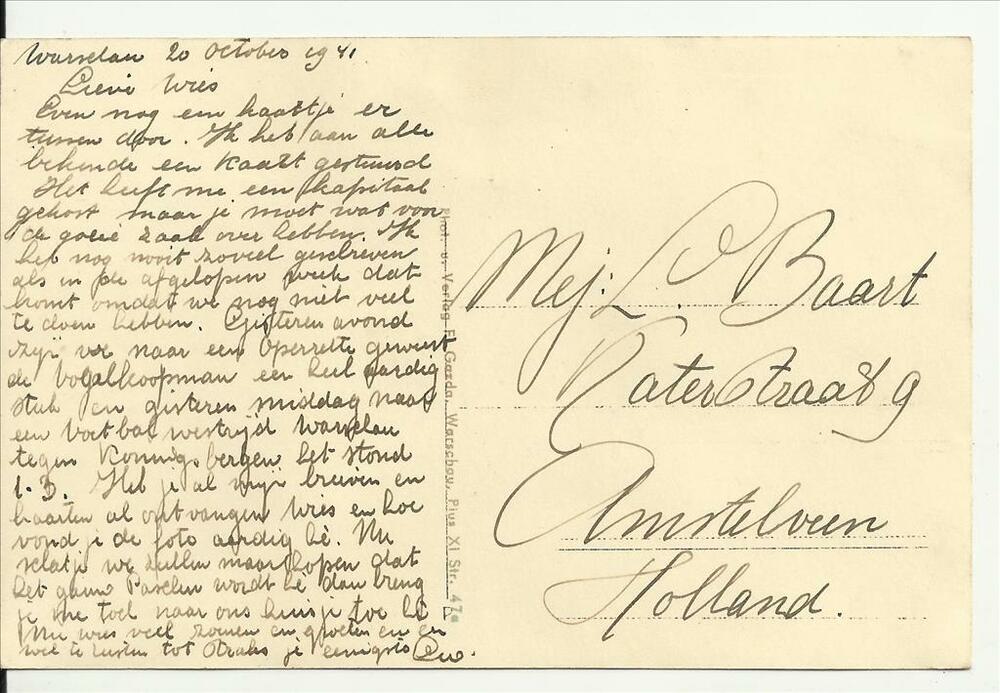 Warselau 20 October 1941.
Lieve Wies
Even nog een kaartje er
tussen door. Ik heb aan alle
bekende een kaart gestuurd
Het heeft me een kapitaal
gekost maar je moet wat voor
de goeie zaak over hebben. Ik
heb nog nooit zoveel geschreven
als in de afgelopen week dat
komt omdat we nog niet veel
te doen hebben. Gisteren avond
zijn we naar een Operrette geweest
de Vogelkoopman een heel aardig
stuk en gisteren middag naar
een Voetbal westrijd Warselau
tegen Konnigsbergen het stond
1-3. Heb je al mijn brieven en
kaarten al ontvangen Wies en hoe
vond je de foto aardig hè. Nu
schatje we zullen maar hopen dat
het gauw Paselen wordt hè dan breng
je me toch naar ons huisje toe hè
Nu wies veel zoenen en groeten en
wel te rusten tot straks je eenigste
Phot. u. Verlag F. Garda, Warschau, Pius XI Str. 47a
Mej: L. Baart
Katerstraat 9
Amstelveen
Holland.